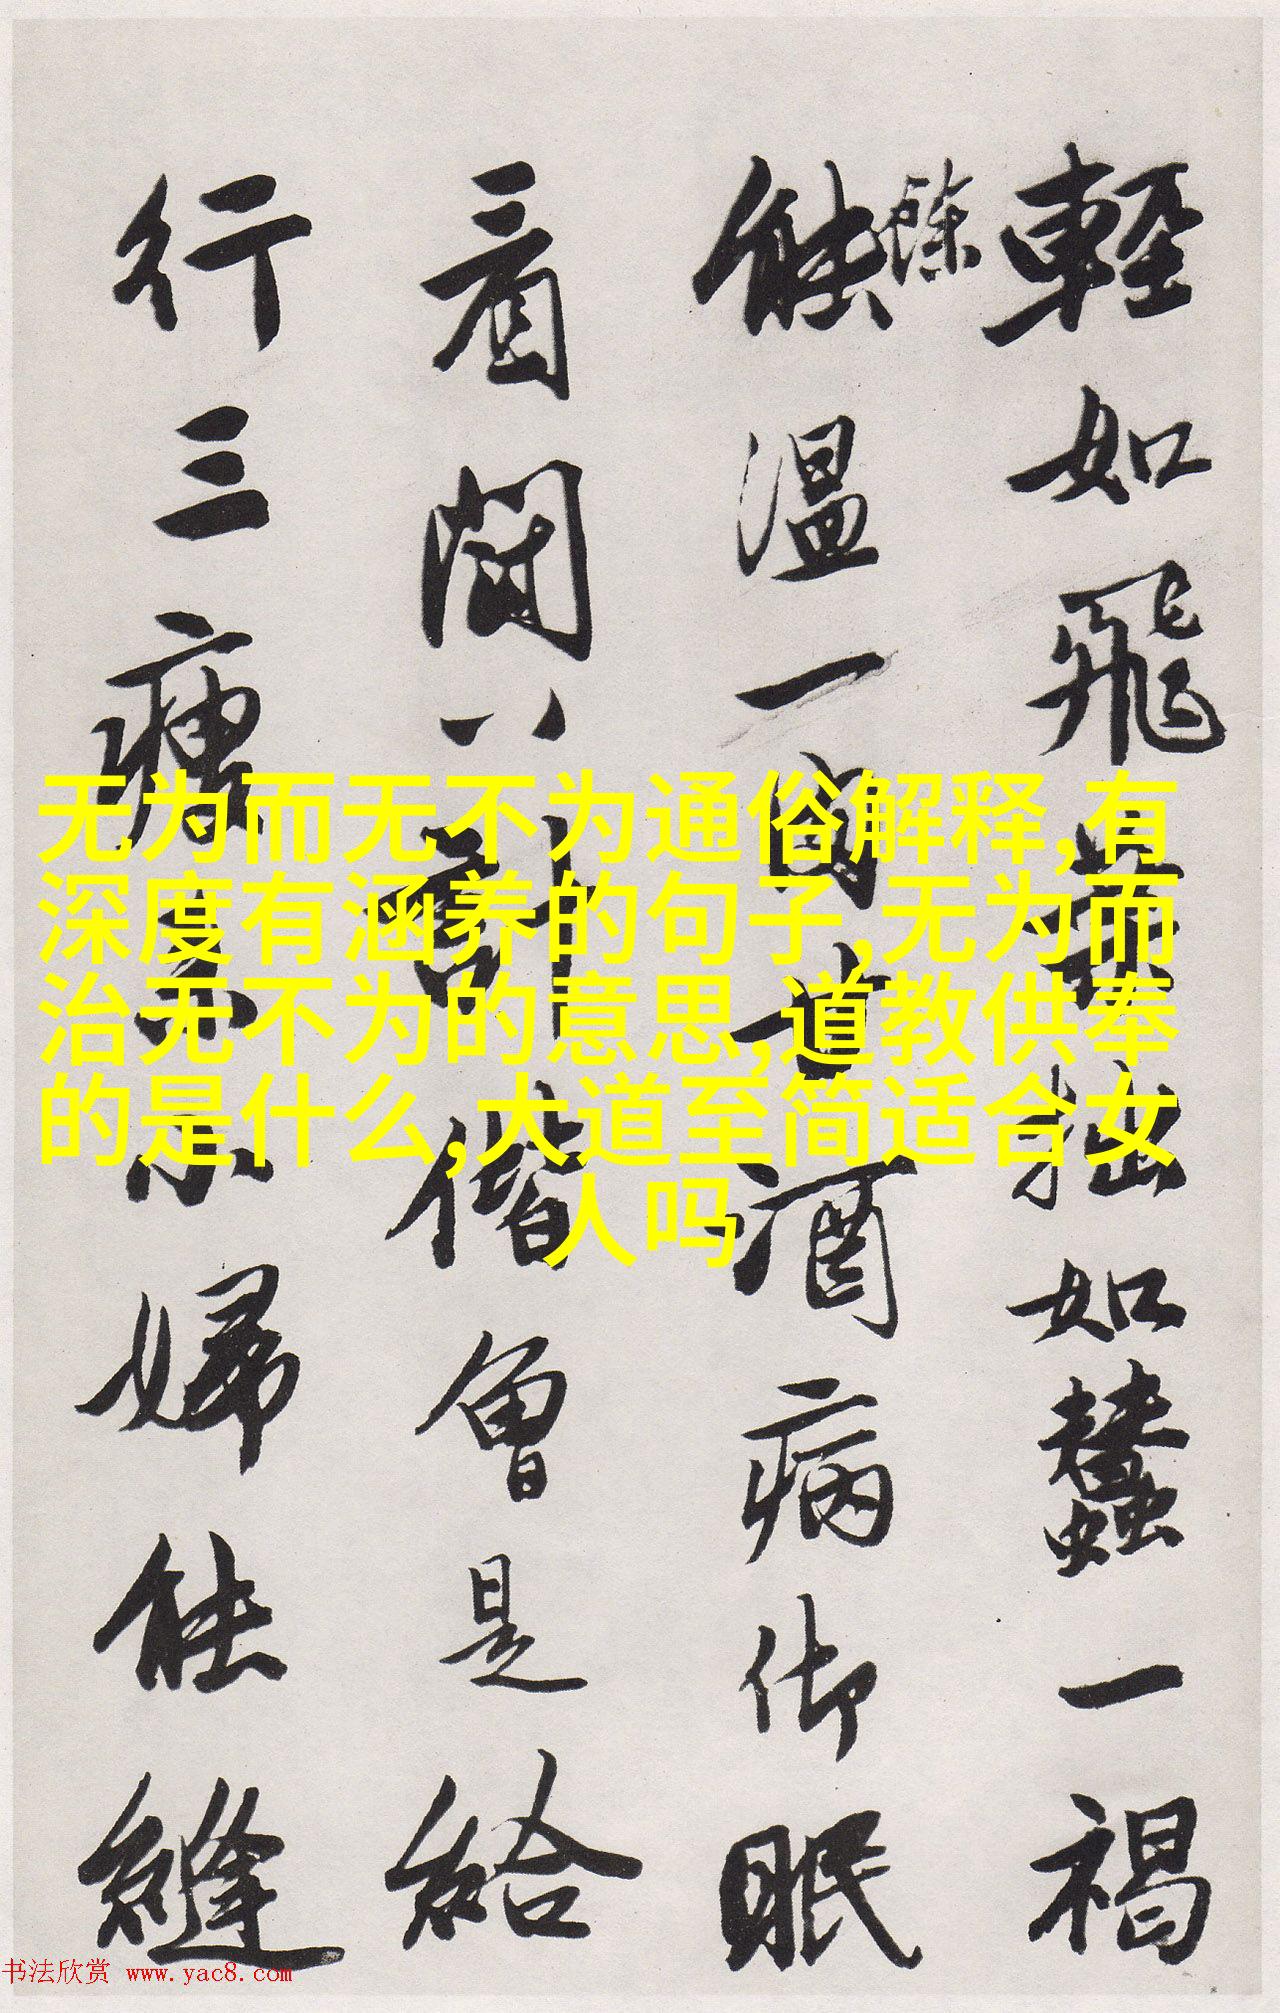 輕如飛無拙如蠶一褐
能溫一酒病御眠
看偕是給
行三婦能縫
无为而无不为通俗解释,有
深度有涵养的句子,无为而
治无不为的意思,道教供奉
的是什么,大道至简适合女
人吗
书法欣赏 www.yac8.com